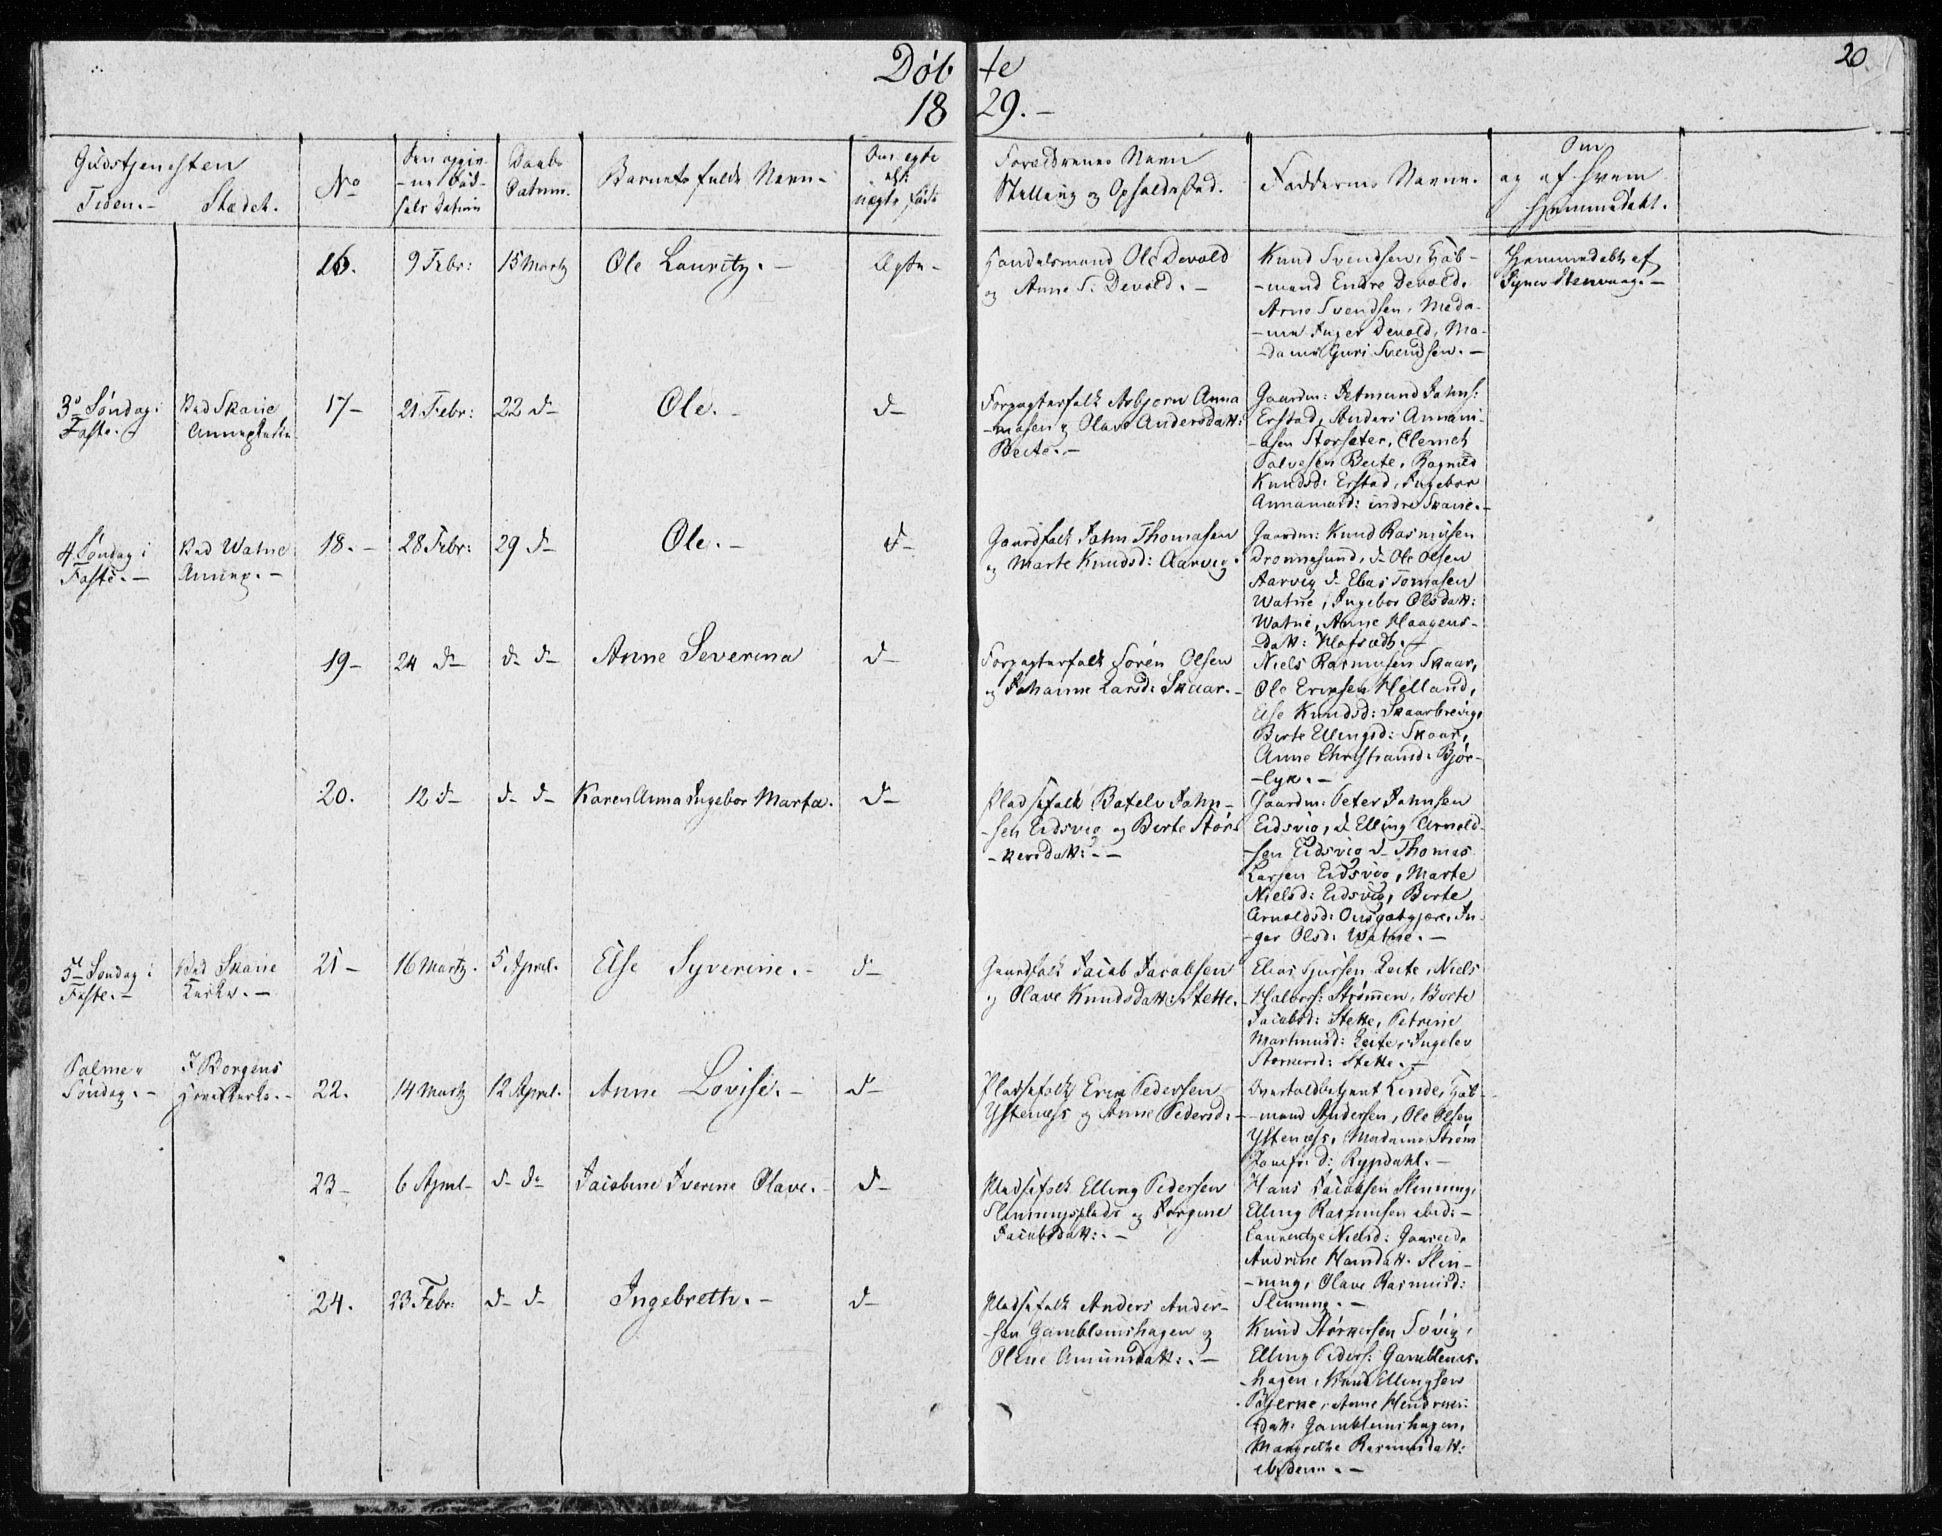 Døbte
1829.-
20
Gudstjenesten
Tiden.- Stædet.
No
Den opgiv-
-ne Fød-
sels Datum
Daabs
Datum.
Barnets fulde Navn-
Om egte
ell:
uægte født
Forældrenes Navn
Stilling og Opholdssted.
Faddernes Navne.
Om
og af hvem
hjemmedøbt.
16. 9 Febr: 15 Martz Ole Lauritz.- Ægte-
Handelsmand Ole Devold
og Anne S. Devold.-
Knud Svendsen, Kjøb-
-mand Endre Devold,
Arne Svendsen, Mada-
-me Inger Devold, Ma-
-dame Guri Svendsen.-
Hjemmedøbt af
Stenvaag.-
3d Søndag i
Faste.-
Ved Skarie
17- 21 Febr: 22 d- Ole.- d-
Forpagterfolk Asbjørn Anna
-masen og Olave Andersdatt:
Beite.-
Gaardm: Jetmund Johns:
Erstad, Anders Annani-
-asen Storsæter, Clemet
Salvesen Beite, Ragnild
Knudsd: Erstad, Ingebor
Annamasd: indre Skarie.-
4 Søndag i
Faste.-
Ved Watne
Annex.-
18.- 28 Febr: 29 d- Ole.- d-
Gaardfolk John Thomasen
og Marte Knudsd: Aarvig.
Gaardm: Knud Rasmusen
Dronnesund, d- Ole Olsen
Aarvig d- Elias Tomasen
Watne, Ingebor Olsdatt:
Watne, Anne Haagens-
datt: Klofsædt.-
19- 24 d- d- d- Anne Severina d-
Forpagterfolk Søren Olsen
og Johanne Larsd: Skaar.-
Niels Rasmusen Skaar,
Ole Ericsen Helland,
Else Knudsd: Skaarbrevig,
Berte Ellingsd: Skaar,
Anne Christiansd: Bjør-
-lyk.-
20. 12 d- d- d- Karen Anna Ingebor Marta. d-
Pladsefolk Botelv John-
-sen Eidsvig og Berte Stør-
-kersdatt:.-
Gaardm: Peter Johnsen
Eidsvig, d- Elling Arnold-
-sen Eidsvig d- Thomas
Larsen Eidsvig, Marte
Nielsd: Eidsvig, Berte
Arnoldsd: In-
-ger Olsd: Watne.-
5d Søndag i
Faste.-
Ved Skarie
Kirke.-
21- 16 Martz. 5 April. Else Syverine.- d-
Gaardfolk Jacob Jacobsen
og Olave Knudsdatt: Stette.
Elias Leite, Niels
Strømmen, Berte
Jacobsd: Stette, Petrine
Martinusd: Leite, Ingelev
Størkersd: Stette.-
Palme-
Søndag.-
I Borgens
Hovedkirke.-
22. 14 Martz 12 April. Anne Lovise.- d-
Pladsefolk Eric Pedersen
Ystenæss og Anne Pedersd:-
Overtoldbetjent Linde, Kjøb-
-mand Andersen, Ole Olsen
Ystenæss, Madame Strøm
Jomfr. d: Rypdahl.-
23- 6 April- d- d- Jacobine Iverine Olave.- d-
Pladsefolk Elling Pedersen
Slinningsplads og Jorgine
Jacobsdatt:.-
Hans Jacobsen Slinning,
Elling Rasmusen ibid:-
Laurentze Nielsd: Gaaseide
Andrine Hansdatt. Slin-
-ning, Olave Rasmusd:
Slinning.-
24. 23 Febr: d- d- Ingebreth.- d-
Pladsefolk Anders Ander-
-sen Gamblemshagen og
Oline Amunsdatt:.-
Knud Størkersen Søvig,
Elling Peders: Gamblems-
-hagen, Knud Ellingsen
Anne Hendrics-
datt: Gamblemshagen,
Margrethe Rasmusdatt:
ibidem.-